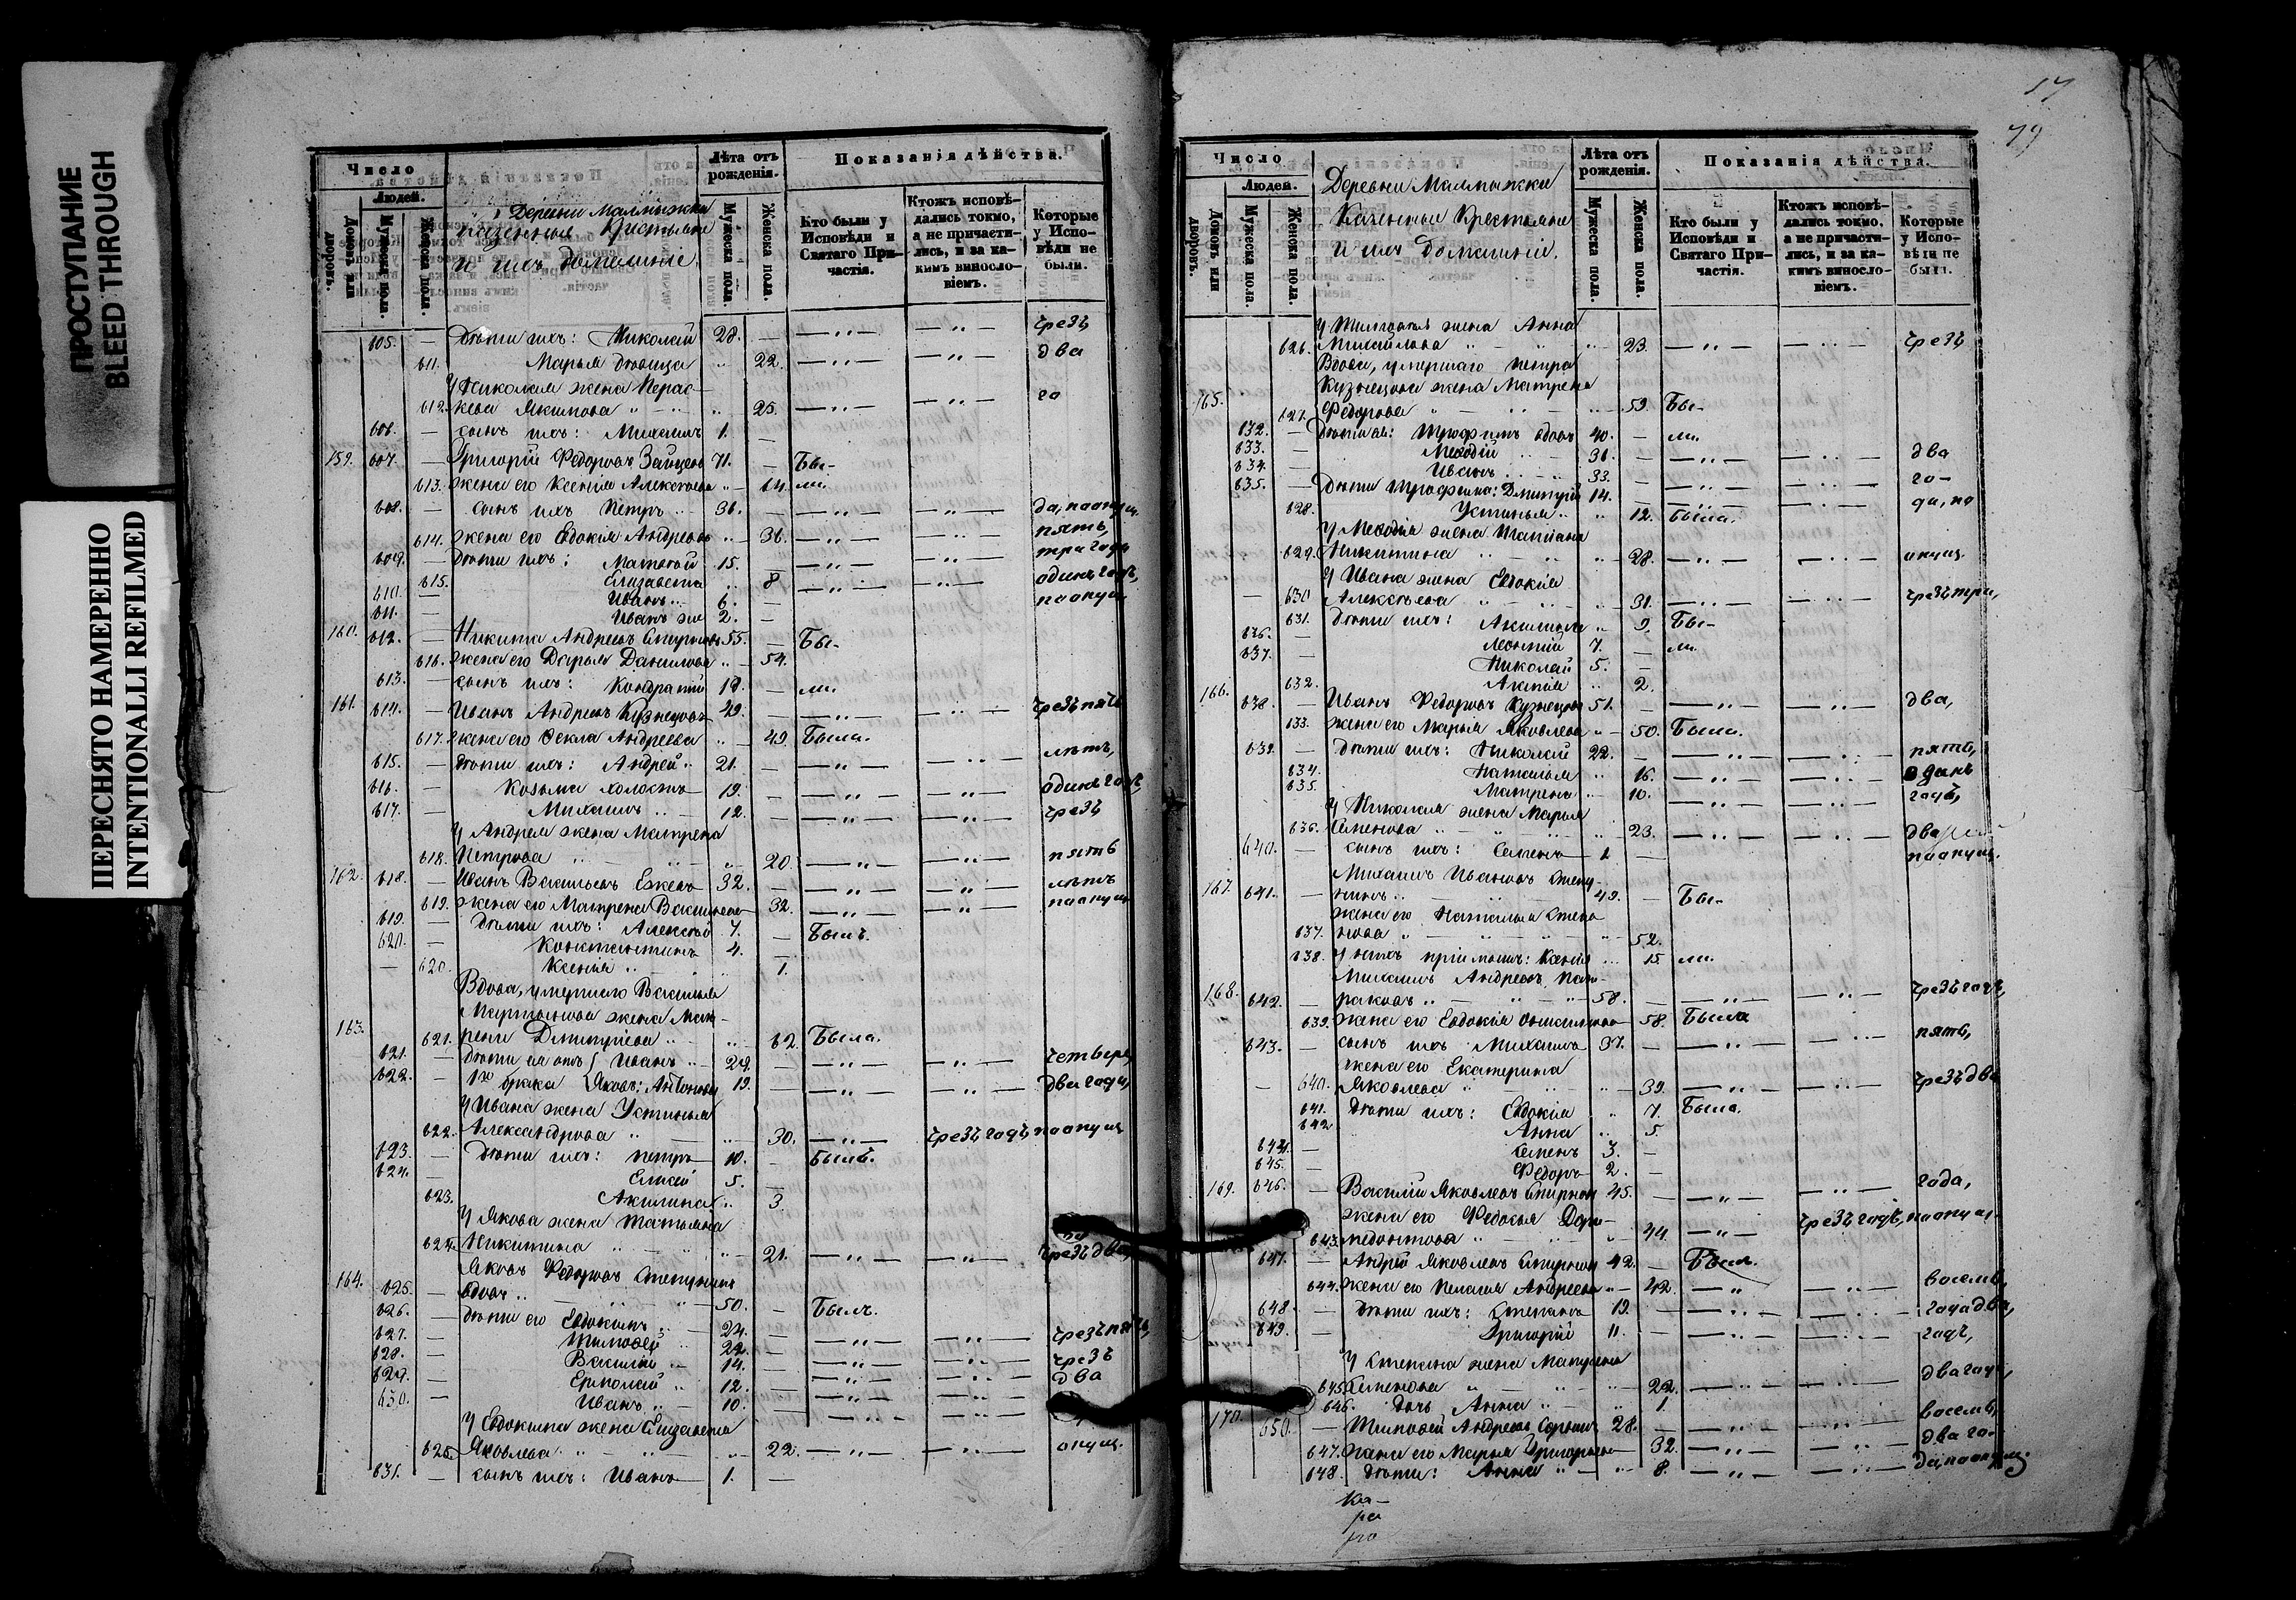 ПРОСТУПАНИЕ
BLEED THROUGH
ПЕРЕСНЯТО НАМЕРЕННО
INTENTIONALLI REFILMED
Число
Людей.
Домовъ или дворовъ.
Мужеска пола.
Женска пола.
Деревни Малмыжки
казенные Крестьяне
и ихъ домашніе
Лѣта отъ рожденія.
Мужеска пола.
Женска пола.
Показанія дѣйства.
Кто были у Исповѣди и Святаго Причастія.
Ктожъ исповѣдались токмо, а не причастились, и за какимъ винословіемъ.
Которые у Исповѣди не были.
605. — Дѣти ихъ: Николай 28. — чрезъ
611. Марья дѣвица 22. два
У Николая жена Перас-
612. кева Якимова 25. го
606. — сынъ ихъ: Михаилъ 1. —
159. 607. — Григорій Федоровъ Зайцевъ 71. — Бы-
613. жена его Ксенія Алексѣева 64. ли.
608. — сынъ ихъ Петръ 36. — да, по опущ.
614. жена его Евдокія Андреева 36. пять,
609. — Дѣти ихъ: Матвей 15. — три года
615. Елизавета 8 одинъ годъ,
610. — Иванъ 6. — по опущ.
611. — Иванъ же 2. —
160. 612. — Никита Андреевъ Смирновъ 55. — Бы-
616. жена его Дарья Данилова 54.
613. — сынъ ихъ: Кондратій 19. — ли.
161. 614. — Иванъ Андреевъ Кузнецовъ 49. — чрезъ пять
617. жена его Фекла Андреева 49. Была.
615. — Дѣти ихъ: Андрей 21. — лѣтъ,
616. — Козьма холостъ 19. — одинъ годъ,
617. — Михаилъ 12. — чрезъ
У Андрея жена Матрена
618. Петрова 20. пять
162. 618. — Иванъ Васильевъ Ежевъ 32. — лѣтъ
619. жена его Матрена Васильева 32. по опущ
619. — Дѣти ихъ: Алексѣй 7. — Былъ.
620. — Константинъ 4. —
— 620. Ксенія 1.
Вдова, умершаго Василья
Мартынова жена Мат-
163. 621. рена Дмитріева 62. Была.
621. — Дѣти ея отъ Иванъ 29. — четыре,
622. — 1го брака Яковъ: Антоновы 19. — два года,
У Ивана жена Устинья
622. Александрова 30. чрезъ годъ, по опущ
623. — Дѣти ихъ: Петръ 10. — Былъ.
624. — Елисей 5. —
623. Акилина 3.
У Якова жена Татьяна
624. Никитина 21. чрезъ два,
Яковъ Федоровъ
164. 625. — вдовъ 50. — Былъ.
626. — Дѣти его Евдокимъ 24. — чрезъ пять,
627. — Тимофей 22. — чрезъ
628. — Василій 14. — два
629. — Ермолай 12. —
630. — Иванъ 10. —
У Евдокима жена Елизавета
625. Яковлева 22. опущ.
631. — сынъ ихъ: Иванъ 1. —
17
79
Число
Людей.
Домовъ или дворовъ.
Мужеска пола.
Женска пола.
Деревни Малмыжки
Казенные Крестьяне
и ихъ домашніе.
Лѣта отъ рожденія.
Мужеска пола.
Женска пола.
Показанія дѣйства.
Кто были у Исповѣди и Святаго Причастія.
Ктожъ исповѣдались токмо, а не причастились, и за какимъ винословіемъ.
Которые у Исповѣди не были.
У Тимофея жена Анна
626. Михайлова 23. чрезъ
Вдова, умершаго Петра
Кузнецова жена Матрена
165. 627. Федорова 59. Бы-
632. — Дѣти ея: Трофимъ вдовъ 40. — ли.
633. — Меѳодій 36. — два
634. — Иванъ 33. — го-
635. — Дѣти Трофима: Дмитрій 14. — да, по
628. Устинья 12. Была.
У Меѳодія жена Татіана
629. Никитина 28. опущ.
У Ивана жена Евдокія
— 630 Алексѣева 31. чрезъ три,
631. Дѣти ихъ: Акилина 9. Бы-
636. — Леонтій 7. — ли.
637. — Николай 5. —
632. 2.
166. 638. — Иванъ Федоровъ Кузнецовъ 51. — два,
633. жена его Марья Яковлева 50. Была.
639. — Дѣти ихъ: Николай 22. — пять,
634. Наталья 16. одинъ
635. Матрена 10. годъ,
У Николая жена Марья
636. Семенова 23. два
640. — сынъ ихъ: Семенъ 1 — по опущ.
Михаилъ Ивановъ
167. 641. — 49. — Бы-
жена его Наталья Степа-
637. нова 52.
638. У нихъ пріёмышъ: Ксенія 15. ли.
Михаилъ Андреевъ
168. 642. — 58. — чрезъ годъ,
639. жена его Евдокія 58. Была
643. — сынъ ихъ Михаилъ 37. — пять,
жена его Екатерина
— 640. Яковлева 39. чрезъ два
641. Дѣти ихъ: Евдокія 7. Была.
642 Анна 5.
644. — Семенъ 3. —
645. — Федоръ 2. —
169. 646. — Василій Яковлевъ Смирновъ 45. — года,
жена его Федосья
643. 44. чрезъ годъ, по опущ.
647. — Андрей Яковлевъ Смирновъ 42. — Былъ.
644. жена его Пелагія Андреева 42. восемь,
648. — Дѣти ихъ: Степанъ 19. — года два,
649. — Григорій 11. — годъ,
У Степана жена Матрена
645. Семенова 22. два года,
646. дочь Анна 1.
170. 650. — Тимофей Андреевъ 28. — восемь,
647. жена его Марья Григорьева 32. два го-
648. Дѣти: Анна 8. да, по опущ.